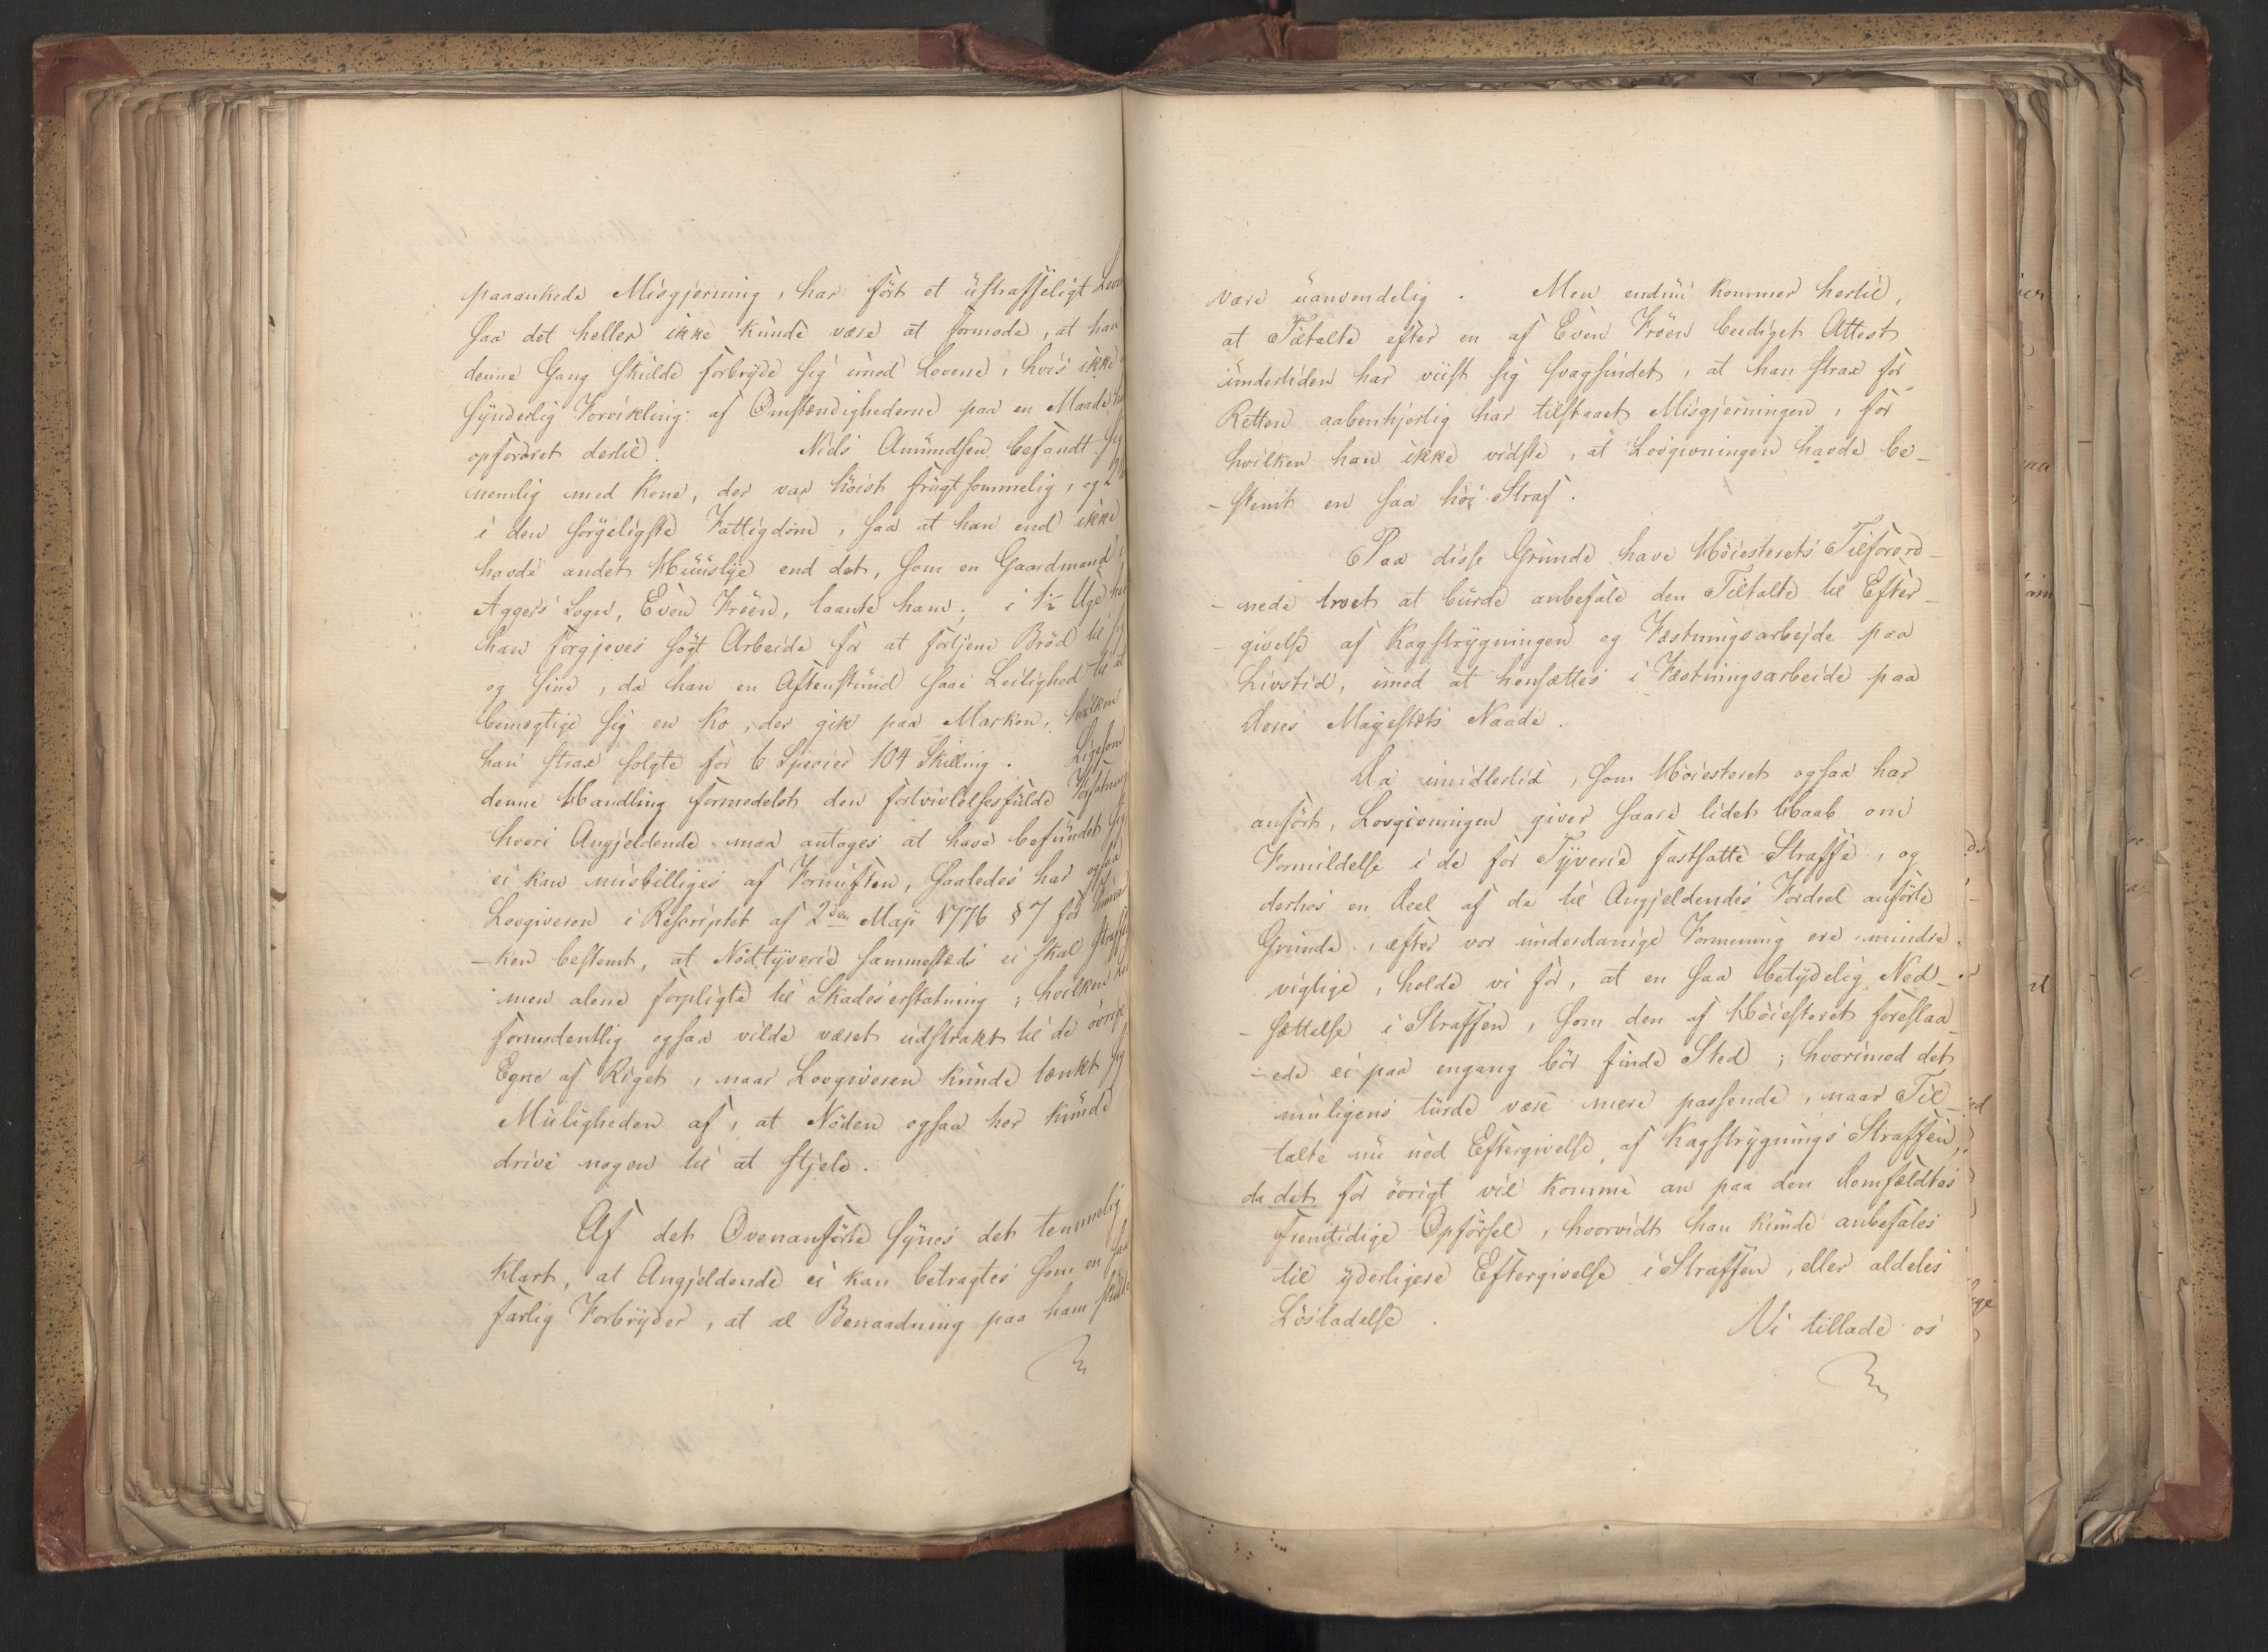 paaankede Misgjerning, har ført et ustraffeligt
saa det heller ikke kunde være at formode, at han
denne Gang skulde forbryde sig imod Lovene, hvis ikke
synderlig Forvikling af Omstændighederne paa en Maade
opfordret dertil. Niels Amundsen befandt sig
nemlig med Kone, der var höist frugtsommelig, og 2
i den sörgeligste Fattigdom, saa at han end ikke
havde andet Huuslye end det, som en Gaardmand i
Aggers Sogn, Even Fröen, laante ham; i 1½ Uge
han forgjeves sögt Arbeide for at fortjene Bröd til sig
og sine, da han en Aftenstund saae Leilighed til at
bemegtige sig en Ko, der gik paa Marken, hvilken
han strax solgte for 6 Species 104 Skilling. Ligesom
denne Handling formedelst den fortvivlelsesfulde Forfatning
hvori Angjeldende maa antages at have befundet sig
ei kan misbilliges af Fornuften, saaledes har ogsaa
Lovgiveren i Rescriptet af 2den Maji 1776 § 7 for
-ken bestemt, at Nödtyverie sammesteds ei skal straffes
men alene forpligte til Skadeserstatning; hvilken
formodentlig ogsaa vilde været udstrakt til de övrige
Egne af Riget, naar Lovgiveren kunde tænkt sig
Muligheden af, at Nöden ogsaa her kunde
drive nogen til at stjele.
Af det Ovenanförte synes det temmelig
klart, at Angjeldende ei kan betragtes som en saa
farlig Forbryder, at al Benaadning paa ham skulde
være uanvendelig. Men endnu kommer hertil,
at Tiltalte efter en af Even Fröen beediget Attest
undertiden har viist sig svagsindet, at han strax for
Retten aabenhjertig har tilstaaet Misgjerningen, for
hvilken han ikke vidste, at Lovgivningen havde be-
-stemt en saa höi Straf.
Paa disse Grunde have Höiesterets Tilforord-
-nede troet at burde anbefale den Tiltalte til Efter-
-givelse af Kagstrygningen og Fæstningsarbejde paa
Livstid, imod at hensættes i Fæstningsarbeide paa
Deres Majestets Naade.
Da imidlertid, som Höiesteret ogsaa har
anfört, Lovgivningen giver saare lidet Haab om
Formildelse i de for Tyverie fastsatte Straffe, og
derhos en Deel af de til Angjeldendes Fordeel anförte
Grunde, efter vor underdanige Formening ere mindre
vigtige, holde vi for, at en saa betydelig Ned-
-sættelse i Straffen, som den af Höiesteret foreslaa-
-ede ei paa engang bör finde Sted; hvorimod det
muligens turde være mere passende, naar Til-
talte nu nöd Eftergivelse af Kagstrygnings Straffen,
da det for övrigt vil komme an paa den Domfældtes
fremtidige Opförsel, hvorvidt han kunde anbefales
til yderligere Eftergivelse i Straffen, eller aldeles
Löslade1se.
Vi tillade os